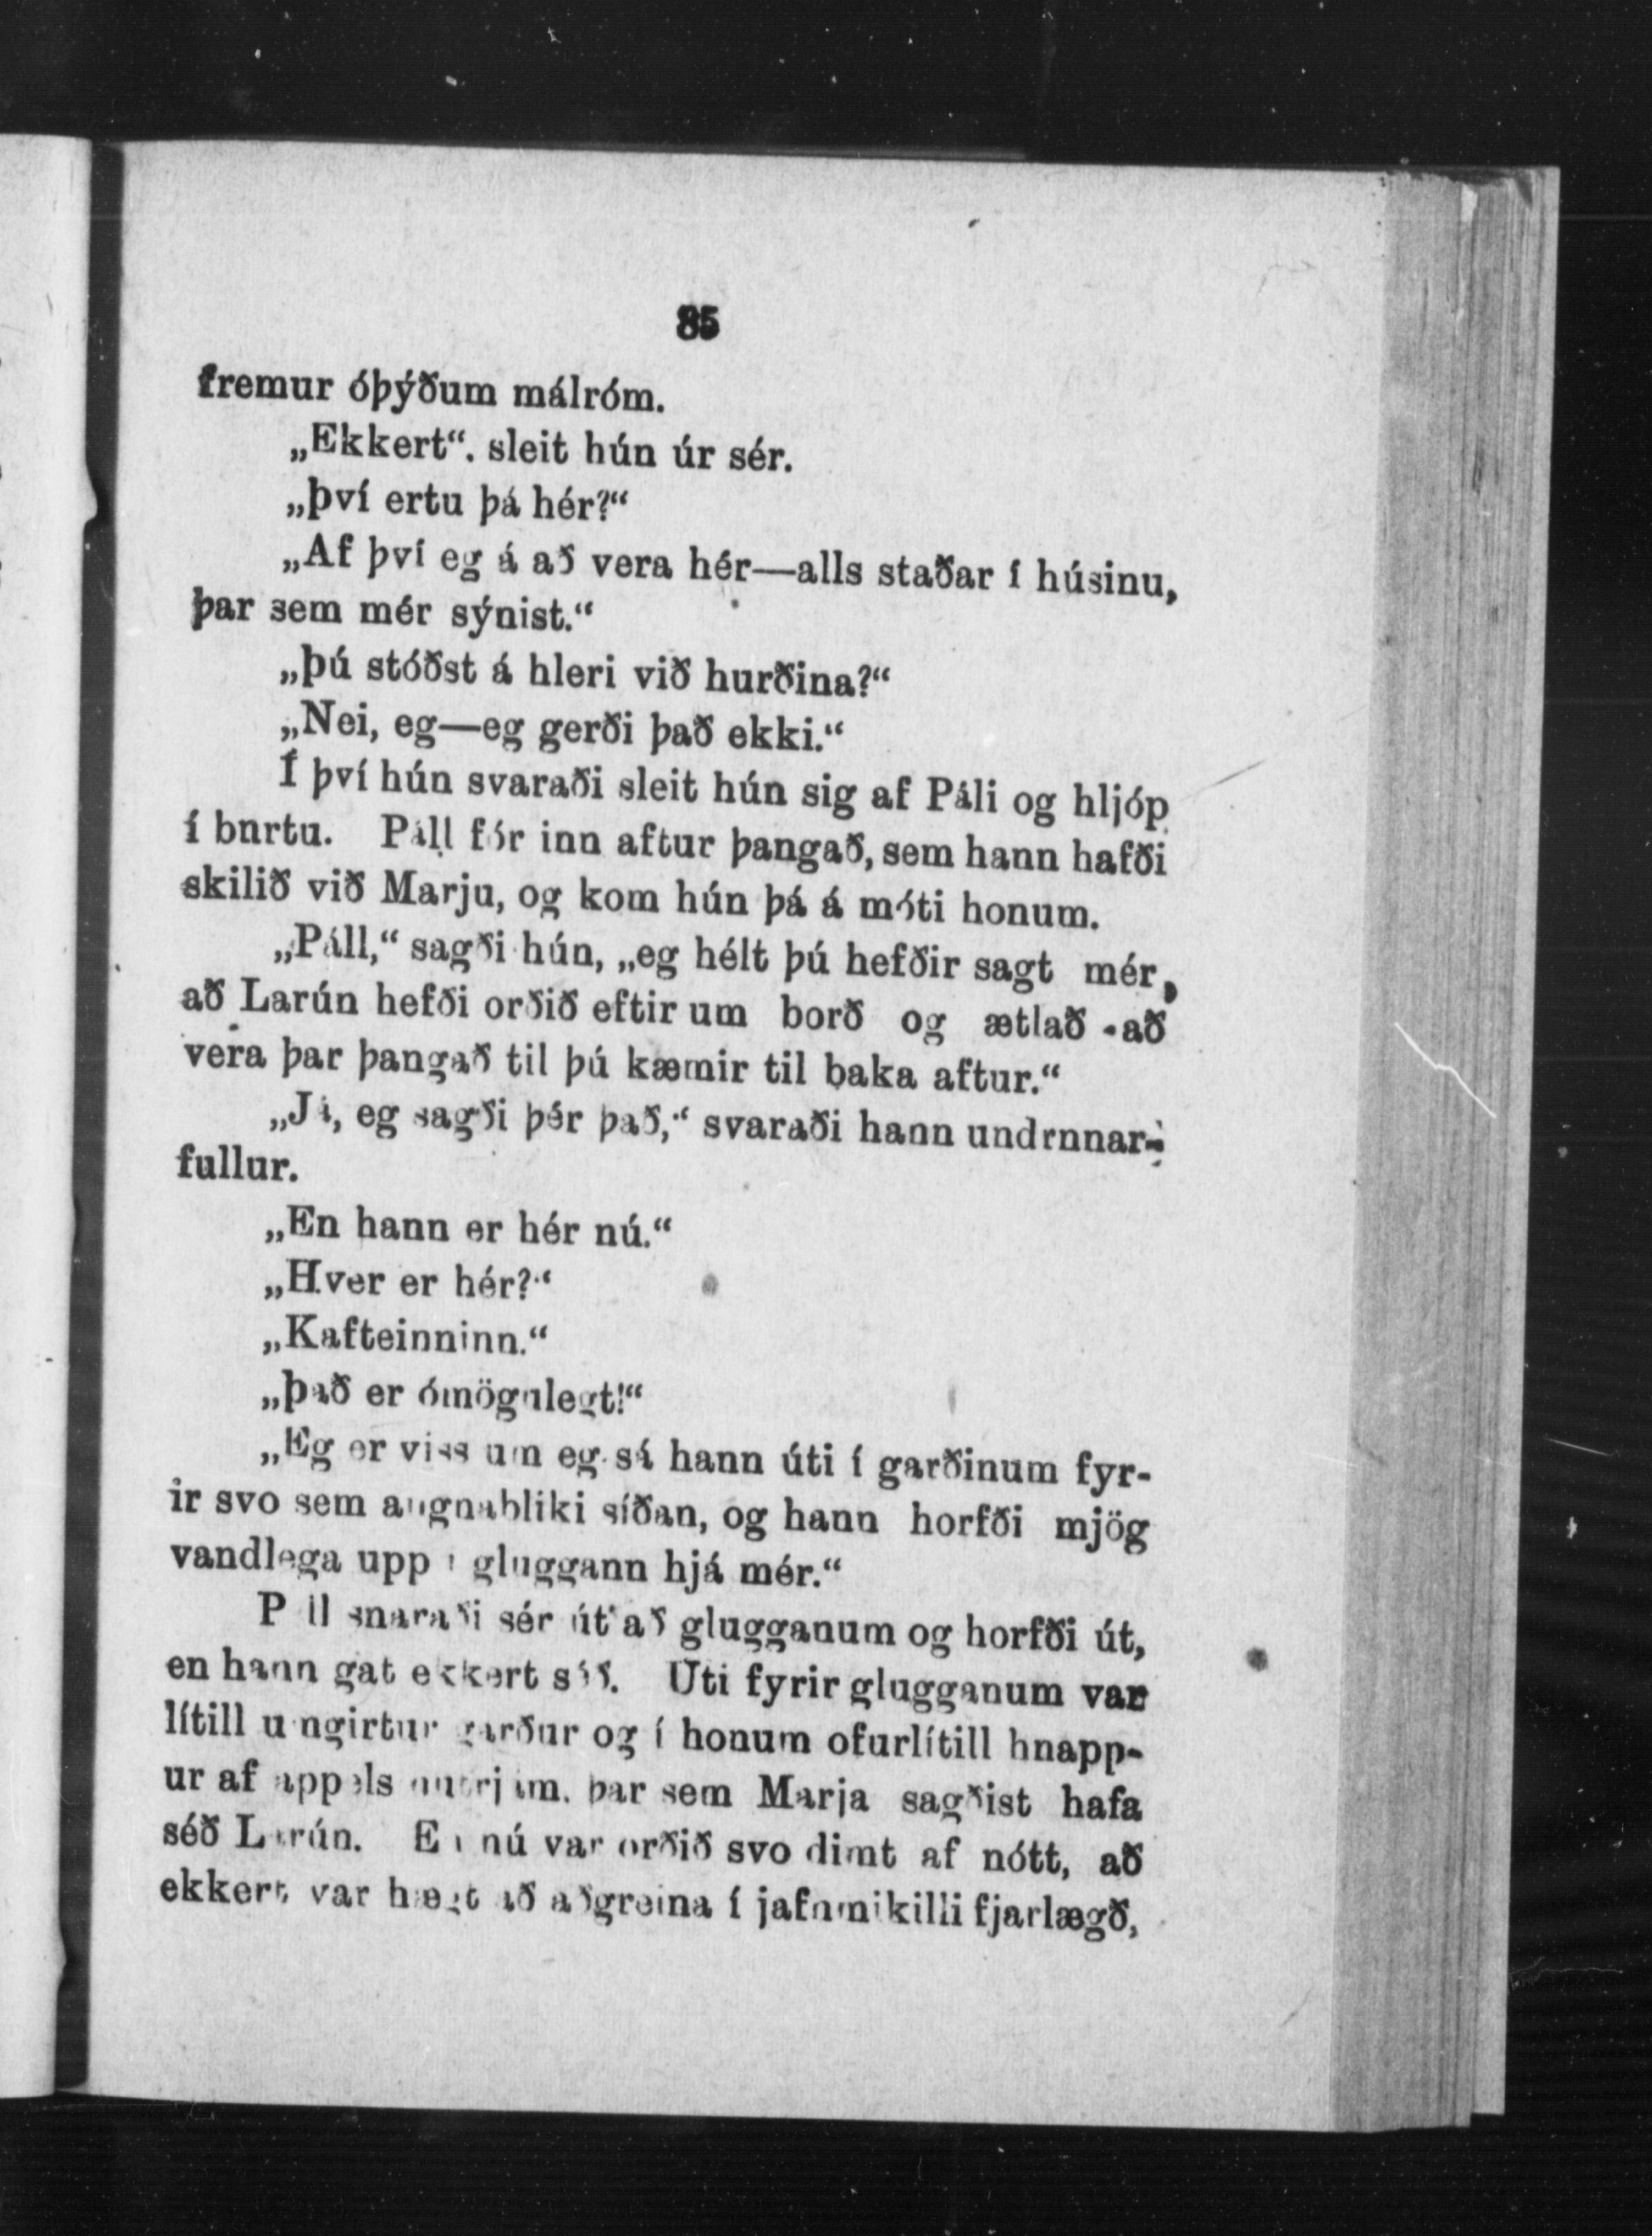 85
fremur óþýðum málróm.
„Ekkert“. sleit hún úr sér.
„Því ertu þá hér?“
„Af því eg á að vera hér—alls staðar í húsinu,
þar sem mér sýnist.“
„Þú stóðst á hleri við hurðina?“
„Nei, eg—eg gerði það ekki.“
Í því hún svaraði sleit hún sig af Páli og hljóp
í bnrtu. Páll fór inn aftur þangað, sem hann hafði
skilið við Marju, og kom hún þá á móti honum.
„Páll,“ sagði hún, „eg hélt þú hefðir sagt mér,
að Larún hefði orðið eftir um borð og ætlað að
vera þar þangað til þú kæmir til baka aftur.“
„Já, eg sagði þér það,“ svaraði hann undrnnar-
fullur.
„En hann er hér nú.“
„Hver er hér?“
„Kafteinninn.“
„Það er ómögulegt!“
„Eg er viss um eg sá hann úti í garðinum fyr-
ir svo sem augnabliki síðan, og hann horfði mjög
vandlega upp í gluggann hjá mér.“
Páll snaraði sér út að glugganum og horfði út,
en hann gat ekkert séð. Úti fyrir glugganum var
lítill umgirtur garður og í honum ofurlítill hnapp-
ur af appelsnutrjám, þar sem Marja sagðist hafa
séð Larún. En nú var orðið svo dimt af nótt, að
ekkert var hægt að aðgreina í jafnmikilli fjarlægð,